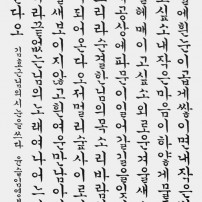 에 흰 눈이 곱게 쌓이면 내 작은
싶소 내 작은 마음이 하얗게 물
헤매이고 싶소 외로운 겨울새
공상에 파문이 일어 갈 길을 잊
리라 순결한 님의 목소리 바람
되어 온다오 저 멀리 숲 사이로
새 보이지 않고 흰 여운만 남아
라 끝없는 님의 노래여 나 어느
다오 김효근